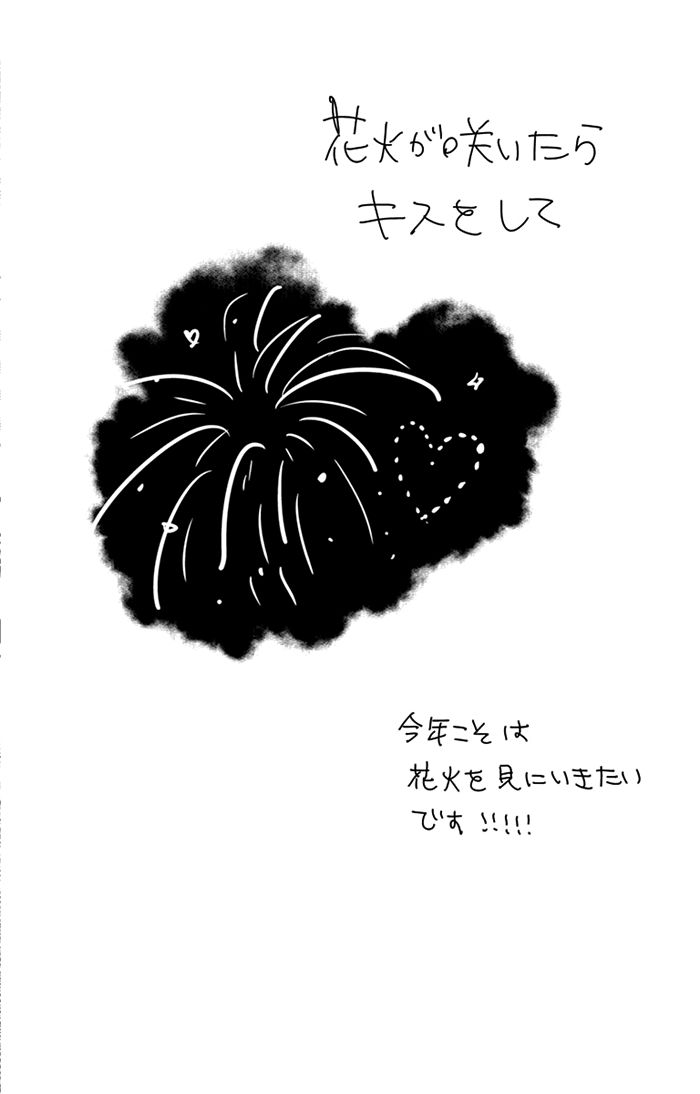 花火が咲いたら
キスをして
今年こそは
花火を見にいきたい
です!!!!!